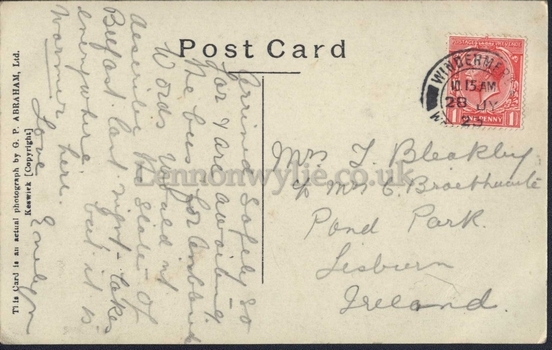 Post Card
Arrived safely so
far & are awaiting
the bus for Ambleside
Words would not
describe the state of
Belfast last night – lakes
everywhere but it is
warmer here.
Love
Emelyn
This Card is an actual photograph by G. P. ABRAHAM, Ltd.
Keswick [Copyright]
WINDERMERE
10.15 AM
28 JY
23
ONE PENNY
Mrs T Bleakley
c/o Mrs C. Braithwaite
Pond Park.
Lisburn
Ireland.
Lennonwylie.co.uk